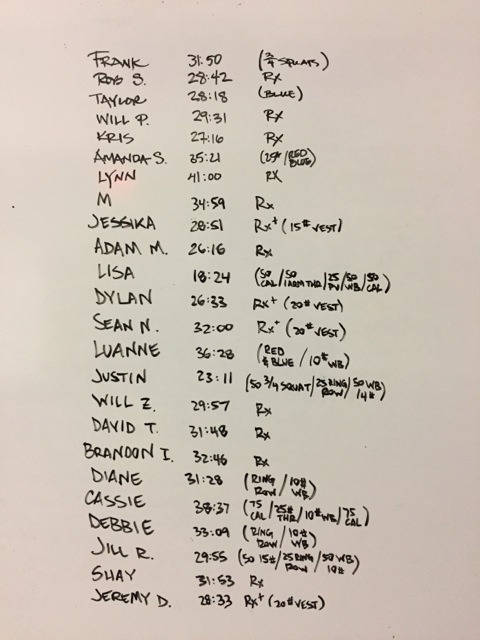 FRANK 31:50 (3/4 SQUATS)
ROB S. 28:42 Rx
TAYLOR 28:18 (BLUE)
WILL P. 29:31 Rx
KRIS 27:16 Rx
AMANDA S. 35:21 (25#/RED BLUE)
LYNN 41:00 RX
M 34:59 Rx
JESSIKA 28:51 Rx+ (15# VEST)
ADAM M. 26:16 Rx
LISA 18:24 (50 CAL/50 1ARM THR/25 PU/50 WB/50 CAL)
DYLAN 26:33 Rx+ (20# VEST)
SEAN N. 32:00 Rx+ (20# VEST)
LUANNE 36:28 (RED & BLUE / 10# WB)
JUSTIN 23:11 (50 3/4 SQUAT/25 RING ROW/50 WB 14#)
WILL Z. 29:57 Rx
DAVID T. 31:48 Rx
BRANDON I. 32:46 Rx
DIANE 31:28 (RING ROW / 10# WB)
CASSIE 38:37 (75 CAL/25# THR/10# WB/75 CAL)
DEBBIE 33:09 (RING ROW / 10# WB)
JILL R. 29:55 (50 15#/25 RING ROW/50 WB 10#)
SHAY 31:53 Rx
JEREMY D. 28:33 Rx+ (20# VEST)